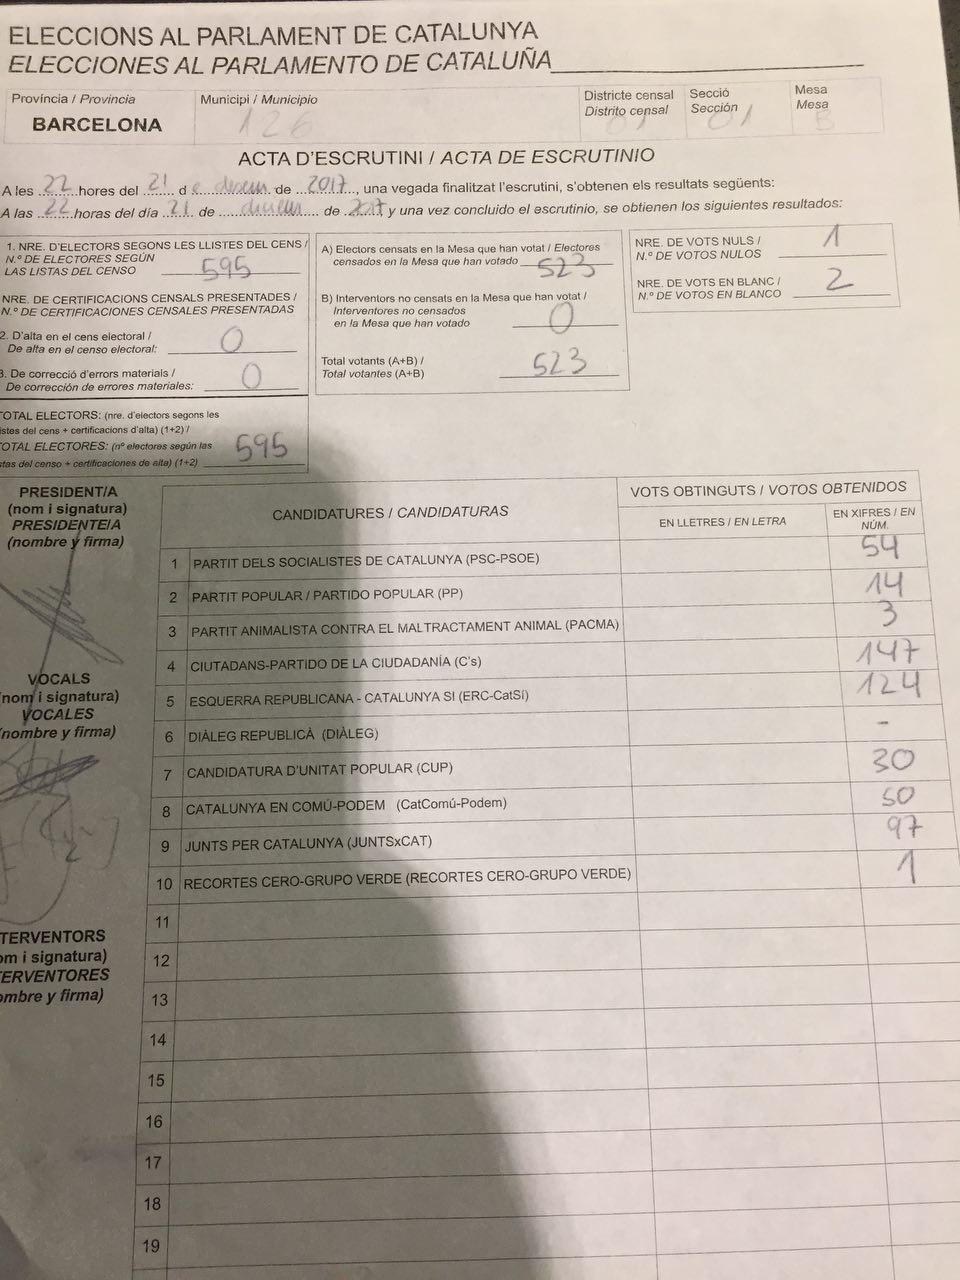 ELECCIONS AL PARLAMENT DE CATALUNYA
ELECCIONES AL PARLAMENTO DE CATALUÑA
Província / Provincia
BARCELONA
Municipi / Municipio
126
Districte censal
Distrito censal
01
Secció
Sección
01
Mesa
Mesa
B
ACTA D'ESCRUTINI / ACTA DE ESCRUTINIO
A les 22 hores del 21 d de 2017, una vegada finalitzat l'escrutini, s'obtenen els resultats següents:
A las 22 horas del día 21 de de 2017 y una vez concluido el escrutinio, se obtienen los siguientes resultados:
1. NRE. D'ELECTORS SEGONS LES LLISTES DEL CENS /
N.º DE ELECTORES SEGÚN
LAS LISTAS DEL CENSO 595
NRE. DE CERTIFICACIONS CENSALS PRESENTADES /
N.º DE CERTIFICACIONES CENSALES PRESENTADAS
2. D'alta en el cens electoral /
De alta en el censo electoral: 0
3. De correcció d'errors materials /
De corrección de errores materiales: 0
OTAL ELECTORS: (nre. d'electors segons les
istes del cens + certificacions d'alta) (1+2) /
OTAL ELECTORES: (nº electores según las
stas del censo + certificaciones de alta) (1+2) 595
A) Electors censats en la Mesa que han votat / Electores
censados en la Mesa que han votado 523
B) Interventors no censats en la Mesa que han votat /
Interventores no censados
en la Mesa que han votado 0
Total votants (A+B) /
Total votantes (A+B) 523
NRE. DE VOTS NULS /
N.º DE VOTOS NULOS 1
NRE. DE VOTS EN BLANC /
N.º DE VOTOS EN BLANCO 2
PRESIDENT/A
(nom i signatura)
PRESIDENTE/A
(nombre y firma)
VOCALS
(nom i signatura)
VOCALES
(nombre y firma)
TERVENTORS
om i signatura)
ERVENTORES
ombre y firma)
CANDIDATURES / CANDIDATURAS
VOTS OBTINGUTS / VOTOS OBTENIDOS
EN LLETRES / EN LETRA
EN XIFRES / EN
NÚM.
1 PARTIT DELS SOCIALISTES DE CATALUNYA (PSC-PSOE) 54
2 PARTIT POPULAR / PARTIDO POPULAR (PP) 14
3 PARTIT ANIMALISTA CONTRA EL MALTRACTAMENT ANIMAL (PACMA) 3
4 CIUTADANS-PARTIDO DE LA CIUDADANÍA (C's) 147
5 ESQUERRA REPUBLICANA - CATALUNYA SI (ERC-CatSí) 124
6 DIÀLEG REPUBLICÀ (DIÀLEG) -
7 CANDIDATURA D'UNITAT POPULAR (CUP) 30
8 CATALUNYA EN COMÚ-PODEM (CatComú-Podem) 50
9 JUNTS PER CATALUNYA (JUNTSxCAT) 97
10 RECORTES CERO-GRUPO VERDE (RECORTES CERO-GRUPO VERDE) 1
11
12
13
14
15
16
17
18
19